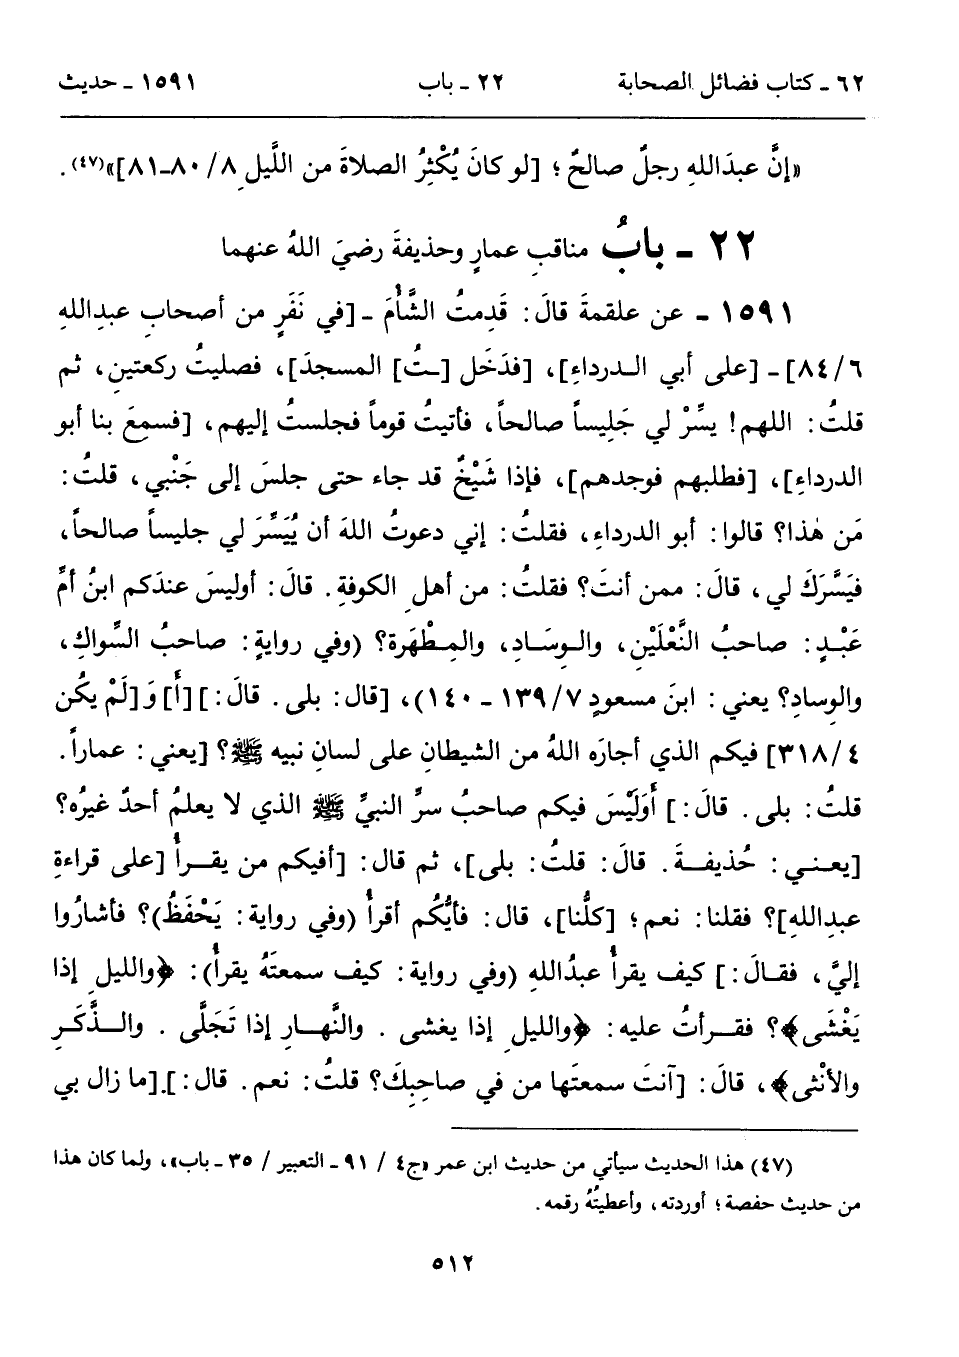 ٦٢ ـ كتاب فضائل الصحابة ٢٢ ـ باب ١٥٩١ ـ حديث
«إنَّ عبدَاللهِ رجلٌ صالحٌ؛ [لو كانَ يُكْثِرُ الصلاةَ من الليلِ ٨/ ٨٠ـ٨١]»(٤٧).
٢٢ ـ بابُ مناقبِ عمارٍ وحذيفةَ رضيَ اللهُ عنهما
١٥٩١ ـ عن علقمةَ قالَ: قَدِمتُ الشَّأْمَ ـ [في نَفَرٍ من أصحابِ عبدِاللهِ
٦/ ٨٤] ـ [على أبي الدرداءِ]، [فدَخَل [ـتُ] المسجدَ]، فصليتُ ركعتينِ، ثم
قلتُ: اللهم! يسِّرْ لي جَلِيساً صالحاً، فأتيتُ قوماً فجلستُ إليهم، [فسمعَ بنا أبو
الدرداءِ]، [فطلبهم فوجدهم]، فإذا شَيْخٌ قد جاء حتى جلسَ إلى جَنْبي، قلتُ:
مَن هٰذا؟ قالوا: أبو الدرداءِ، فقلتُ: إني دعوتُ اللهَ أن يُيَسِّرَ لي جليساً صالحاً،
فيَسَّرَكَ لي، قالَ: ممن أنتَ؟ فقلتُ: من أهلِ الكوفةِ. قالَ: أوليسَ عندَكم ابنُ أمِّ
عَبْدٍ: صاحبُ النَّعْلَيْنِ، والوِسَادِ، والمِطْهَرة؟ (وفي روايةٍ: صاحبُ السِّواكِ،
والوِسادِ؟ يعني: ابنَ مسعودٍ ٧/ ١٣٩ ـ ١٤٠)، [قال: بلى. قالَ:] [أَ] وَ [لَمْ يكُن
٤/ ٣١٨] فيكم الذي أجارَه اللهُ من الشيطانِ على لسانِ نبيه ﷺ؟ [يعني: عماراً.
قلتُ: بلى. قالَ:] أَوَلَيْسَ فيكم صاحبُ سرِّ النبيِّ ﷺ الذي لا يعلمُ أحدٌ غيرُه؟
[يعني: حُذيفةَ. قالَ: قلتُ: بلى]، ثم قال: [أفيكم من يقرأُ [على قراءةِ
عبدِاللهِ]؟ فقلنا: نعم؛ [كلُّنا]، قال: فأيُّكُم أقرأُ (وفي رواية: يَحْفَظُ)؟ فأشارُوا
إليَّ، فقالَ:] كيف يقرأُ عبدُاللهِ (وفي رواية: كيف سمعتَهُ يقرأُ): ﴿والليلِ إذا
يَغْشَى﴾؟ فقرأتُ عليه: ﴿والليلِ إذا يغشى. والنَّهارِ إذا تَجَلَّى. والذَّكَرِ
والأنْثى﴾، قالَ: [آنتَ سمعتَها من في صاحِبِكَ؟ قلتُ: نعم. قال:]. [ما زال بي
(٤٧) هذا الحديث سيأتي من حديث ابن عمر «ج٤ / ٩١ ـ التعبير / ٣٥ ـ باب»، ولما كان هذا
من حديث حفصة؛ أوردته، وأعطيتُهُ رقمه.
٥١٢